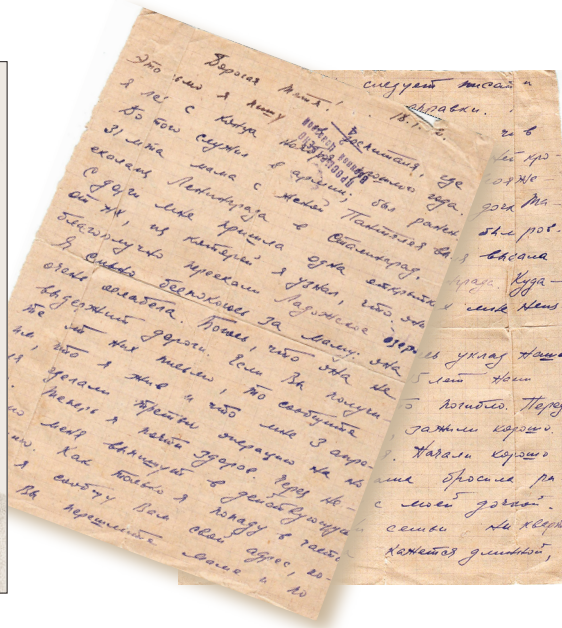 Дорогая Тётя! 18.
Это письмо я пишу госпиталя, где
я лежу с конца прошлого года.
До того служил в армии, был ранен
31 мая мама с женой Пантелея вы
ехала из Ленинграда в Сталинград,
с дороги мне пришла одна открытка
от них, из которой я узнал, что они
благополучно переехали Ладожское озеро
Я сильно беспокоюсь за маму: она
очень ослабела. Боюсь, что она не
выдержит дороги. Если Вы получи
те от них письмо, то сообщите
им, что я жив и что мне 3 апре
сделали третью операцию на
Теперь я почти здоров. Через не-
меня выпишут в действующую
Как только я попаду в часть
я сообщу Вам свой адрес,
Вы перешлите маме и по
следует писать и
справки.
ей кро-
дочь Ма
был ров-
я выехала
града. Куда-
мне неиз
уклад наше
5 лет
погибло. Перед
зажили хорошо.
Начали хорошо
бросила ра
с моей дочкой.
семьи
кажется длинной,